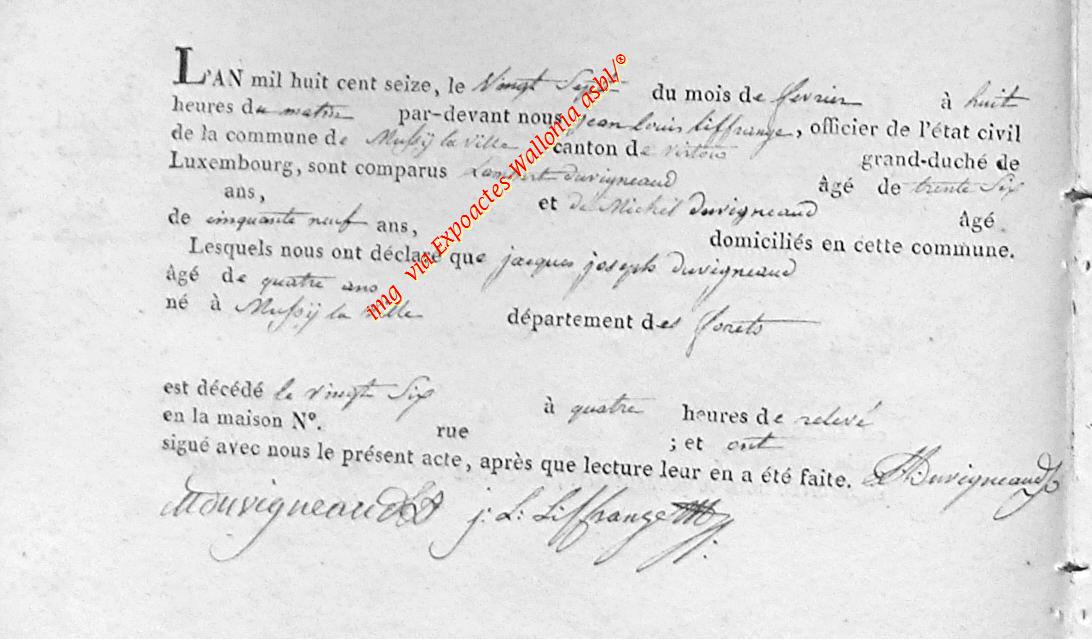 L'AN mil huit cent seize, le Vingt Sept du mois de fevrier à huit
heures du matin par-devant nous jean Louis Liffrange, officier de l'état civil
de la commune de Mussÿ la Ville canton de virton grand-duché de
Luxembourg, sont comparus Lambert duvigneaud âgé de trente Six
ans, et de Michel duvigneaud âgé
de cinquante neuf ans, domiciliés en cette commune.
Lesquels nous ont déclaré que jacques joseph duvigneaud
âgé de quatre ans
né à Mussÿ la Ville département des forets
est décédé le vingt Six à quatre heures de relevé
en la maison N°. rue ; et ont
signé avec nous le présent acte, après que lecture leur en a été faite. Duvigneaud
MDuvigneaud j: L: Liffrange
img via Expoactes-Wallonia asbl/®